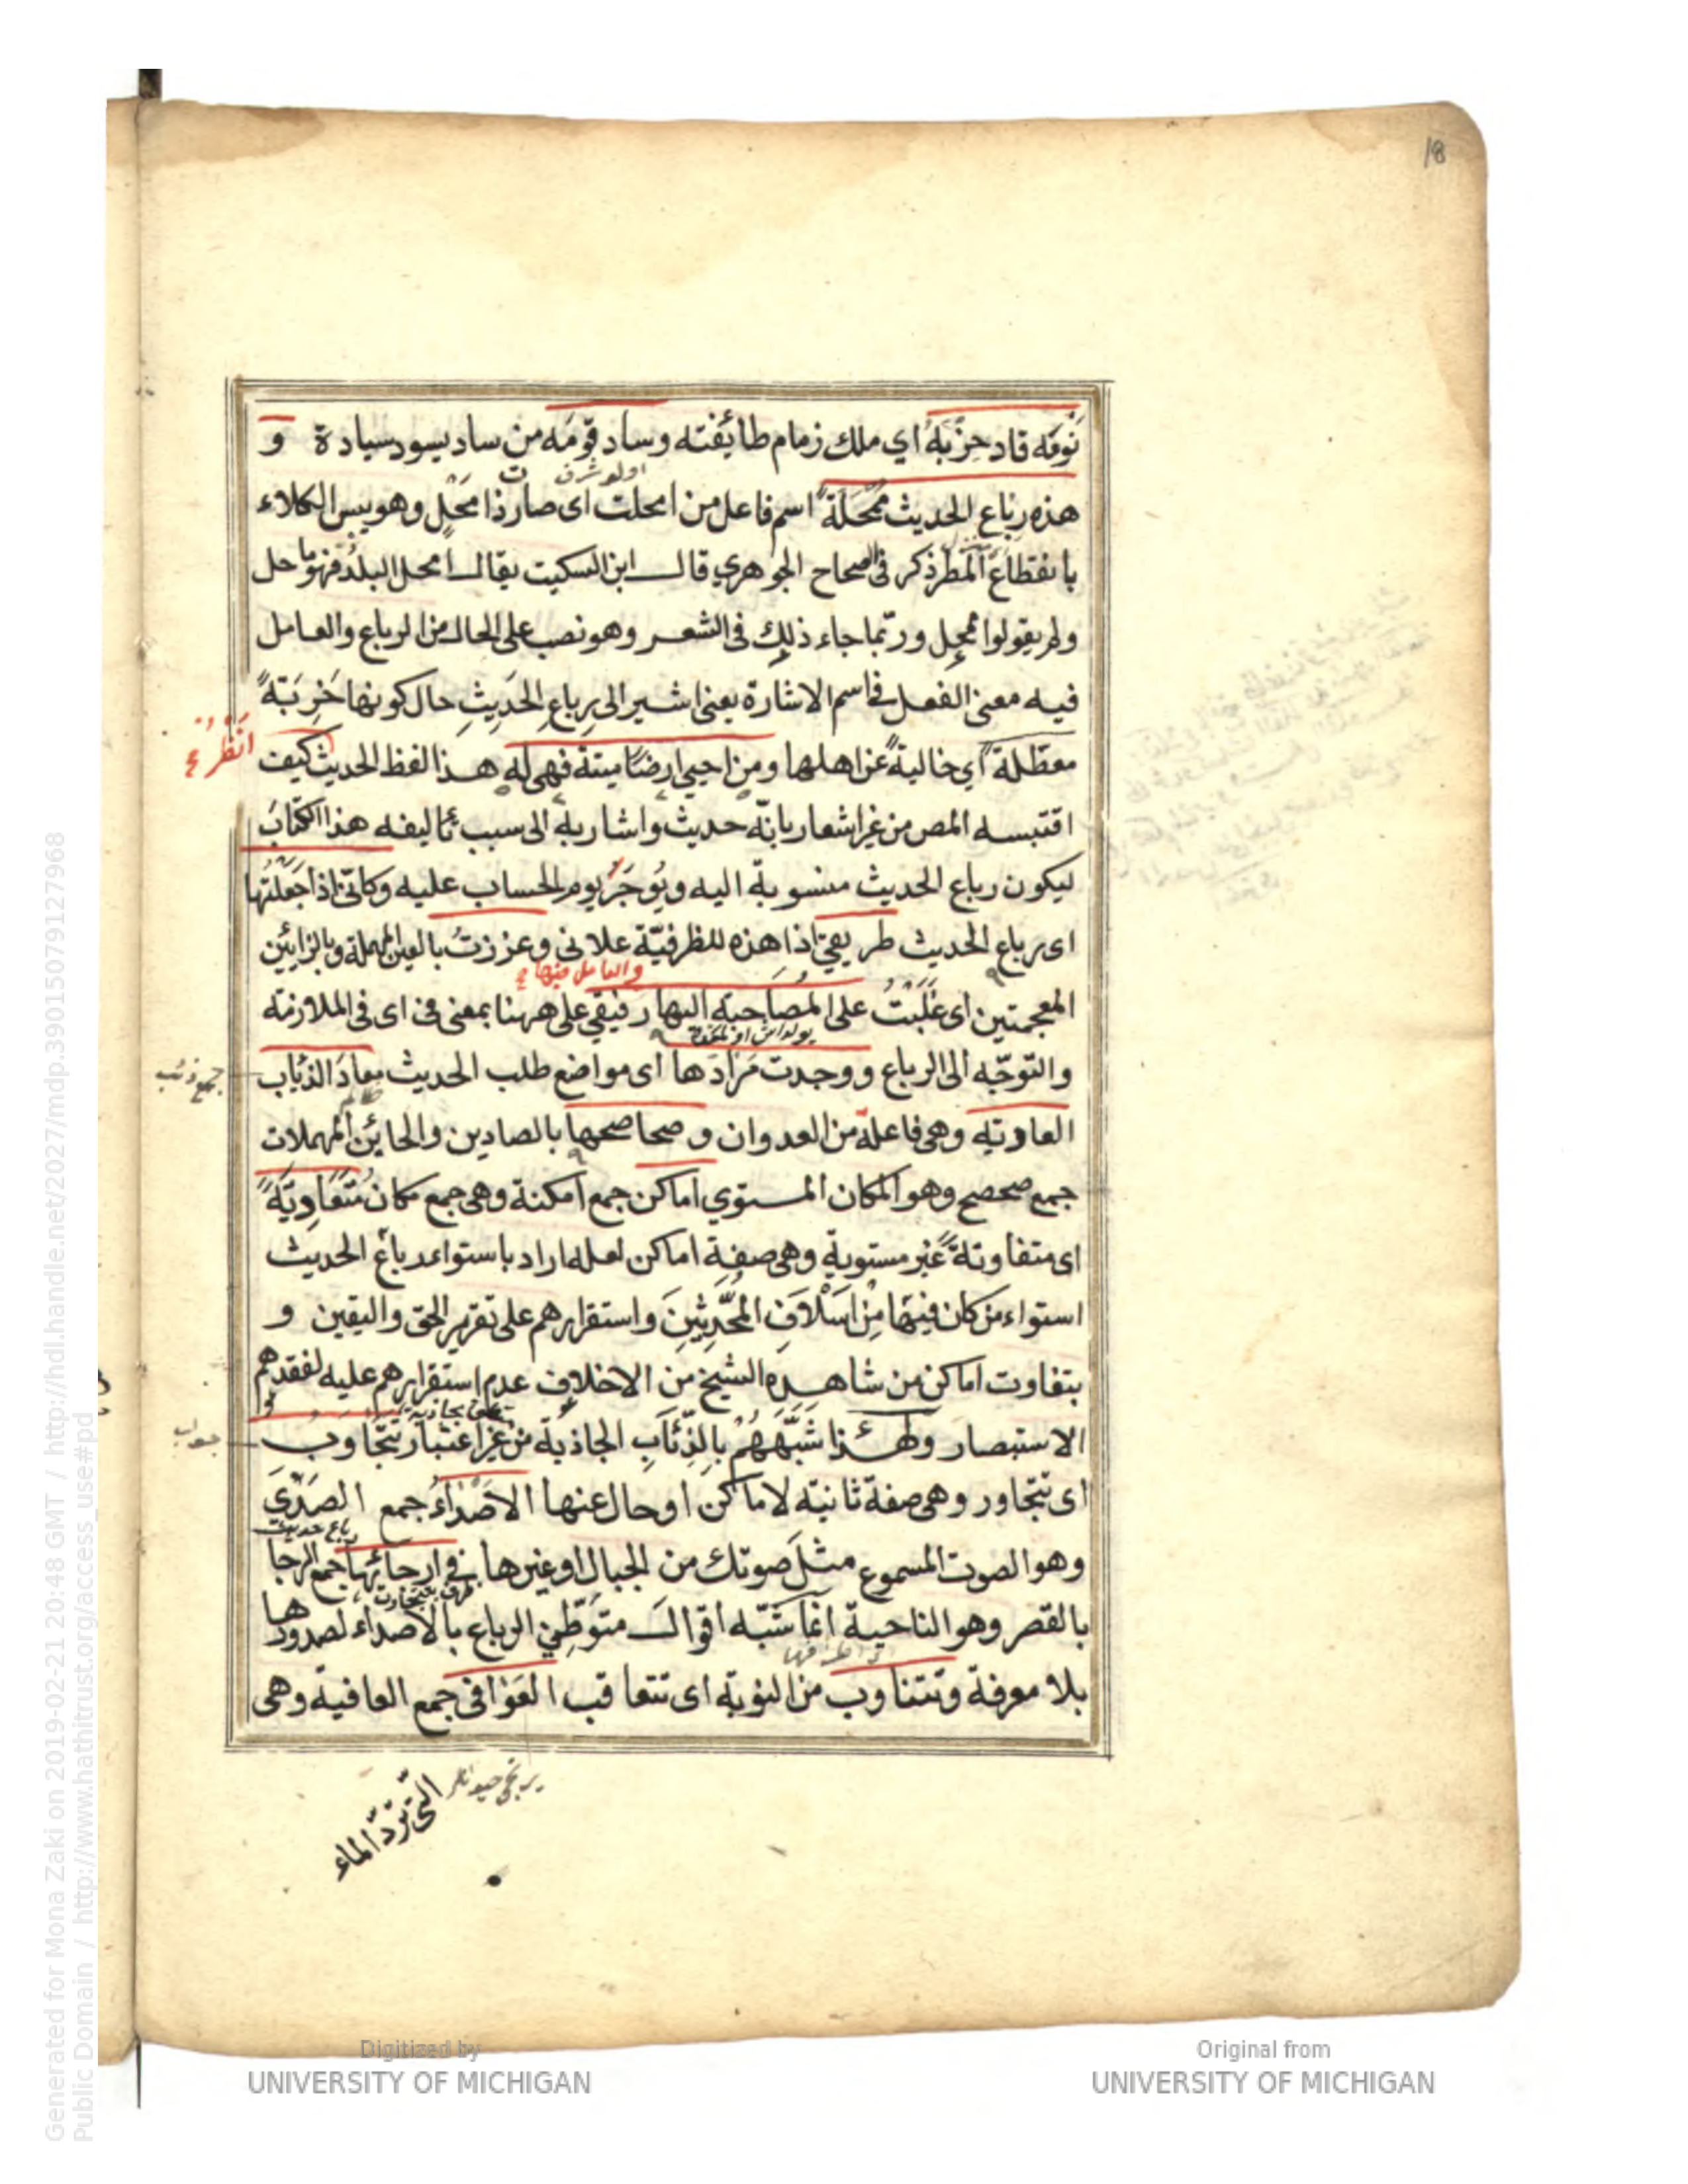 18
نَوقَه قاد حِزْبَهُ اي ملك زمام طائفته وساد قومَه من ساد يسود سيادة و
اولو شرف
هذه رباع الحديث مُمْحَلَةً اسم فاعل من امحلت اى صار ذا مَحْلٍ وهو يبس الكلاء
بانقطاع المطر ذكر فى الصحاح الجوهري قال ابن السكيت يقال امحل البلدُ فهو ماحل
ولم يقولوا ممحل وربّما جاء ذلك فى الشعر وهو نصب على الحال من الرباع والعامل
فيه معنى الفعل فى اسم الاشارة يعنى اشير الى رباعِ الحَدِيثِ حال كونها خَرِبَةً
معطّلةً اي خاليةً عن اهلها ومن احيى ارضًا ميتة فهى له هذا لفظ الحديث كيف
انْظُرْ
اقتبسه المص من غير اشعار بانّه حديث واشار به الى سبب تاليفه هذا الكتابَ
ليكون رباع الحديث منسوبة اليه ويُوجَرُ يوم الحساب عليه وكانى اذا جَعَلْتُها
اى رباع الحديث طريقى اذا هذه للظرفيّة علانى وعززتُ بالعين المهملة وبالزايين
والعامل فيها
المعجمتين اى غَلَبْتُ على المُصَاحبة اليها رفيقى على ههنا بمعنى فى اى فى الملازمة
والتوجّه الى الرباع ووجدت مَرَادَها اى مواضع طلب الحديث معادَ الذئاب
جمع ذئب
العادية وهى فاعلة من العدوان و صحاصحها بالصادين والحائين المهملات
جمع صحصح وهو المكان المستوي اماكن جمع امكنة وهى جمع مكان مُتَعَادِيَةً
اى متفاوتةً غير مستوية وهى صفة اماكن لعله اراد باستواء رباع الحديث
استواء من كان فيهَا مِنْ اَسْلَافِ المُحَدِّثِينَ واستقرارهم على تقرير الحق واليقين و
بتفاوت اماكن من شاهده الشيخ من الاخلاف عدم استقرارهم عليه لفقدهم
الاستبصار ولهذا شَبَّهَهُمْ بالذِّئَابِ الجاذبة من غير اعتبار تتجاوب
جواب
اى تتجاور وهى صفة ثانية لاماكن او حال عنها الاصْدَاءُ جمع الصَدَى
رباع حديث
وهو الصوت المسموع مثلَ صوتك من الجبال او غيرها فى ارجائها جمع الرجا
بالقصر وهو الناحية انما شبّه اقوال متوَطِّنى الرباع بالاصداء لصدورها
بلا معرفة وتتناوب من النوبة اى تتعاقب العَوَافى جمع العافية وهى
التى تَرِدُ الماء
Generated for Mona Zaki on 2019-02-21 20:48 GMT / http://hdl.handle.net/2027/mdp.39015079127968
Public Domain / http://www.hathitrust.org/access_use#pd
Digitized by
UNIVERSITY OF MICHIGAN
Original from
UNIVERSITY OF MICHIGAN